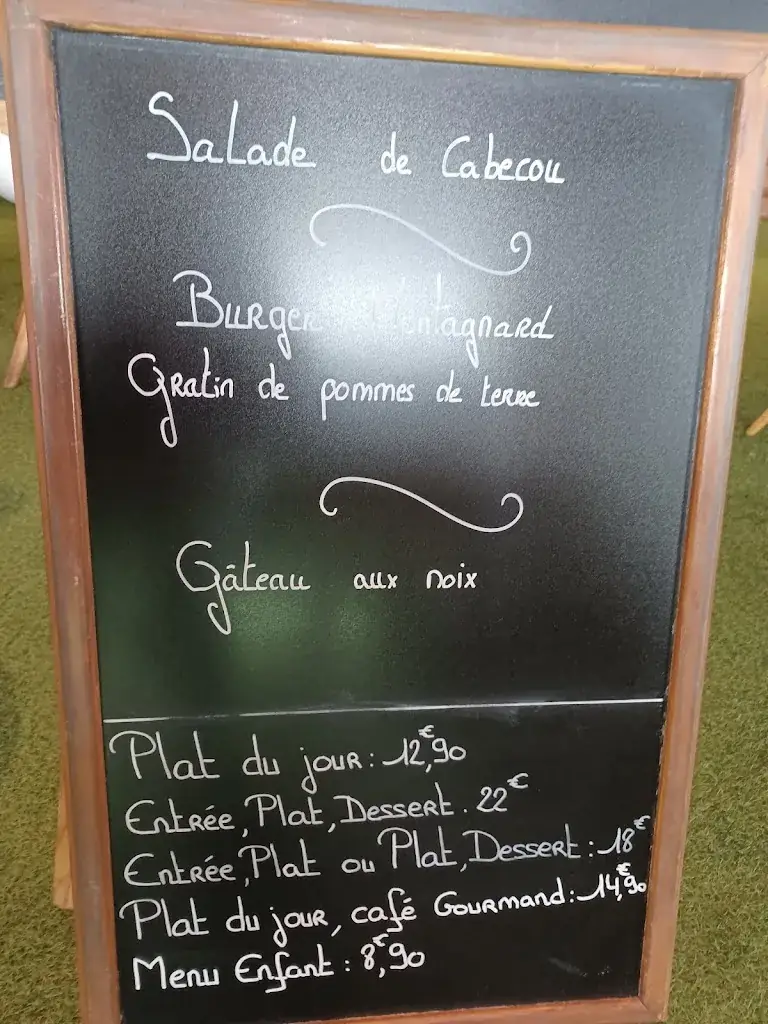 Salade de Cabecou
Burger Montagnard
Gratin de pommes de terre
Gâteau aux noix
Plat du jour : 12,€90
Entrée, Plat, Dessert . 22€
Entrée, Plat ou Plat, Dessert : 18€
Plat du jour, café Gourmand : 14,€90
Menu Enfant : 8,€90